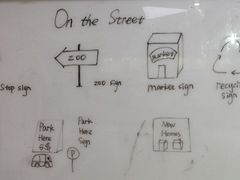 On the Street
ZOO
market
Stop sign
zoo sign
market sign
recycl
sign
Park
Here
Park
Here
Sign
P
New
Homes